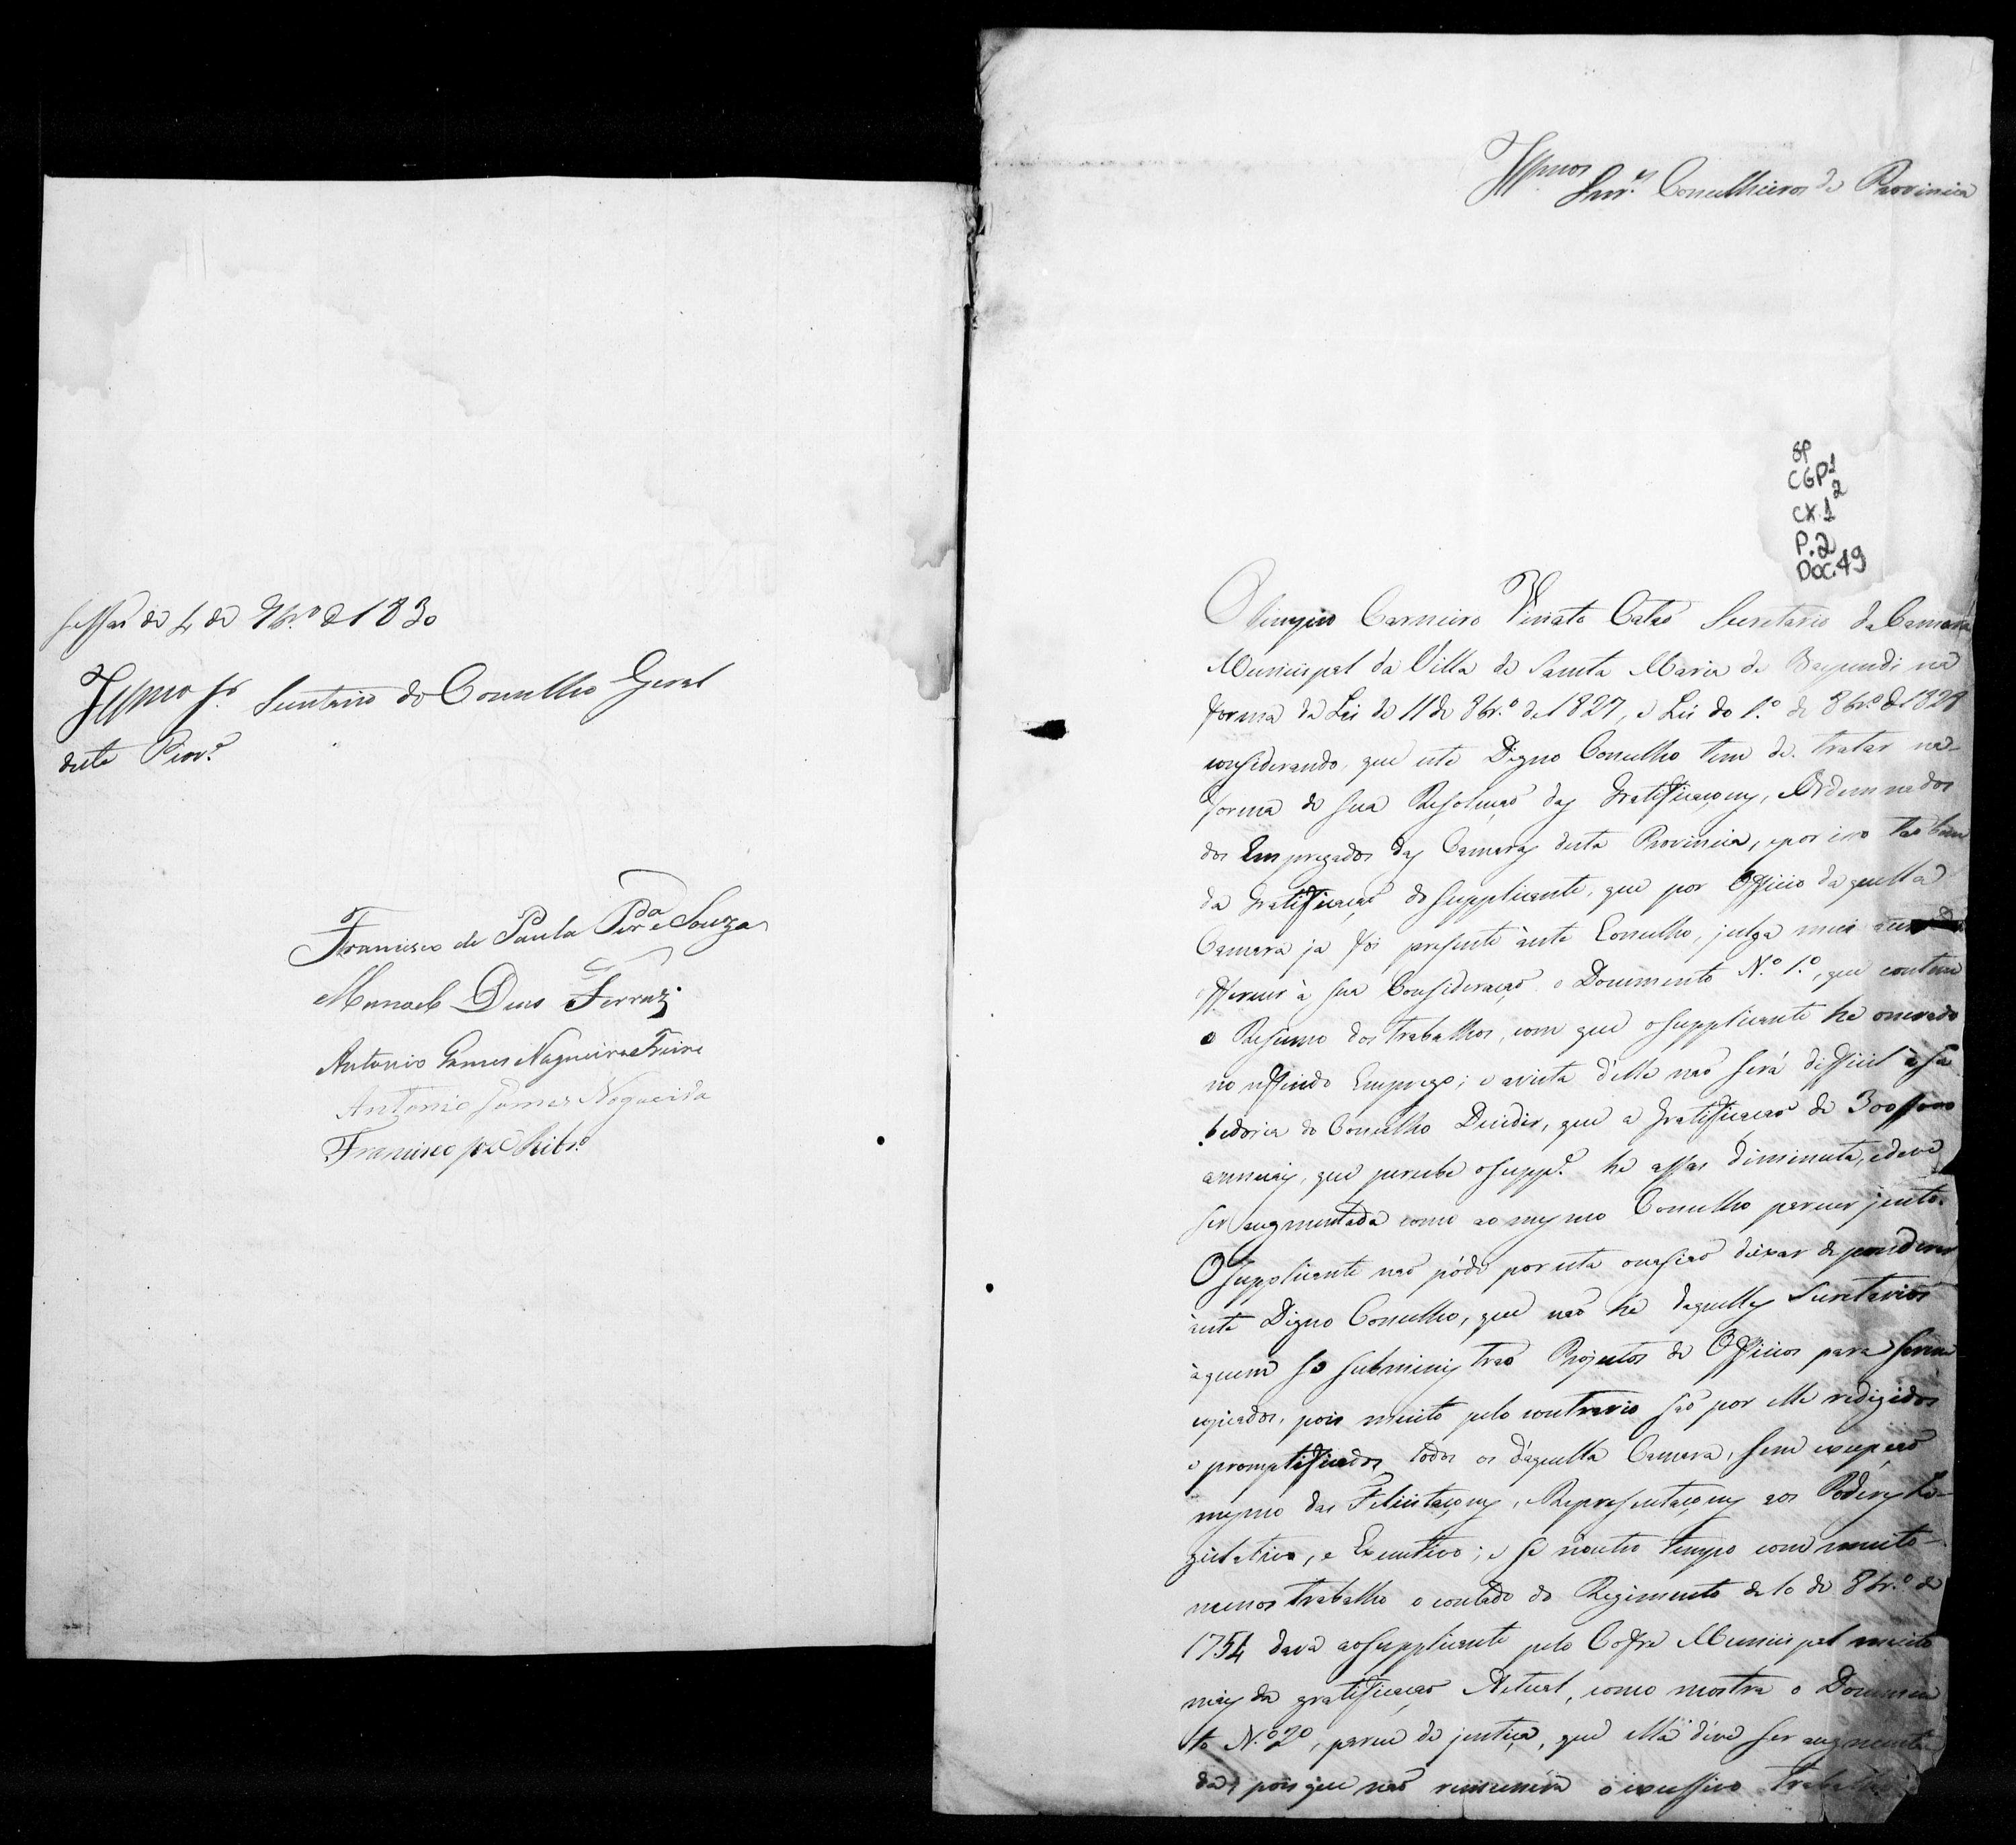 Sessão de 4 de 9br.º de 1830
Illmo Sr. Secretario do Conselho Geral
desta Prov.ª
Francisco de Paula Per.ª de Souza
Manoel Dias Ferraz
Antonio Gomes Nogueira Freire
Antonio Gomes Nogueira
Francisco José Ribr.º
Illmos Snr.es Conselheiros de Provincia
SP
CGP1
2
CX.1
P.2
DOC.49
Olimpio Carneiro Viriato Catão Secretario da Camara
Municipal da Villa de Santa Maria de Baependi na
forma da Lei de 11 de 8br.º de 1827, e Lei do 1.º de 8br.º de 1828
considerando, que este Digno Conselho tem de tratar na
forma de sua Resolução das Gratificaçoens, e Ordennados
dos Empregados das Camaras desta Provincia, e por isso tãobem
da Gratificação do Supplicante, que por Officio daquella
Camara ja foi presente ànte Conselho, julga mui
offerecer à sua Consideração o Documento N.º 1.º, que contem
o Resumo dos trabalhos, com que o Supplicante he onerado
no referido Emprego; e avista d'elle não será difficil à Sa
bedoria do Conselho Decidir, que a Gratificação de 300$000
annuais, que percebe o Supp.e he assas diminuta, e deve
ser augmentada como ao mesmo Conselho parecer justo.
O Supplicante não póde por esta occasião deixar de ponderar
ànte Digno Conselho, que não he daquelles Secretarios
àquem se subministrão Projectos de Officios para serem
copiados, pois muito pelo contrario são por elle redigidos
e promptificados todos os d'aquella Camara, sem excepção
mesmo das Felicitaçoens, e Representaçoens aos Poderes Le-
gislativo, e Executivo; e se nòutro tempo com muito
menos trabalho o contado do Regimento de 10 de 8br.º de
1754 dava ao Supplicante pelo Cofre Municipal muito
mais da gratificação Actual, como mostra o Documen
to N.º 2º, parece de justiça, que ella deve ser augmenta
da, pois que não remunera o excessivo trabalho